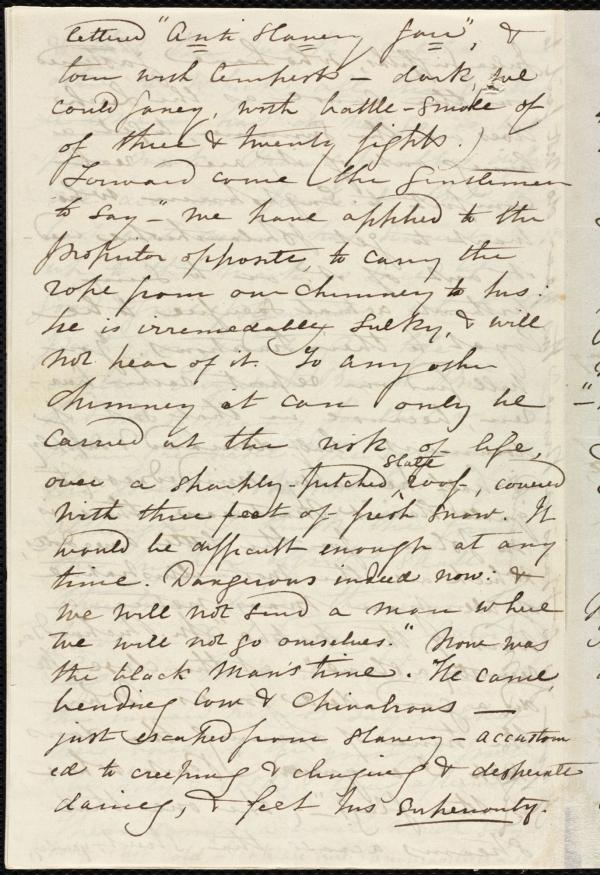 lettered "Anti Slavery Fair", &
torn with tempests - dark, we
could fancy, with battle-smoke of
of three & twenty fights.)
Forward come the Gentlemen
to say - "we have applied to the
proprietor opposite, to carry the
rope from our chimney to his:
he is irremediably sulky, & will
not hear of it. To any other
chimney it can only be
carried at the risk of life,
over a sharply-pitched, slate roof, covered
with three feet of fresh snow. It
would be difficult enough at any
time. Dangerous indeed now: &
we will not send a man where
we will not go ourselves." Now was
the black man's time. He came
bending low & chivalrous —
just escaped from slavery - accustom
ed to creeping & clinging & desperate
daring, & felt his superiority.